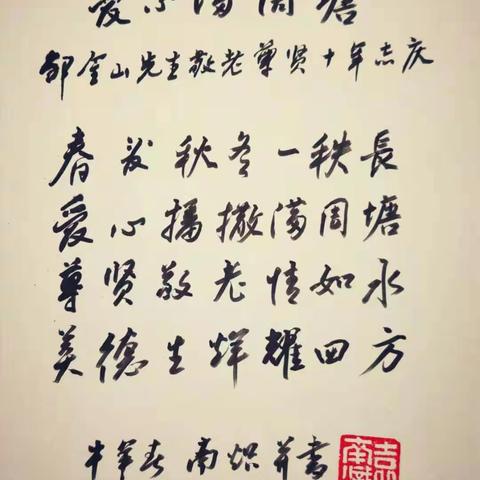 爱心满周塘
邹金山先生敬老尊贤十年志庆
春夏秋冬一秩長
爱心播撒满周塘
尊贤敬老情如水
美德生辉耀四方
牛年春 南炽并書